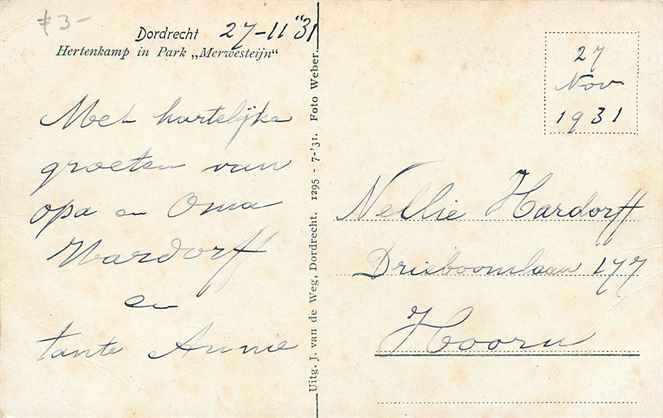 f 3-
Dordrecht 27-11 "31
Hertenkamp in Park „Merwesteijn"
Met hartelijke
groeten van
opa en Oma
Hardorff
en
tante Annie
Uitg. J. van de Weg, Dordrecht. 1295 - 7-'31. Foto Weber.
27
Nov
1931
Nellie Hardorff
Drieboomlaan 177
Hoorn